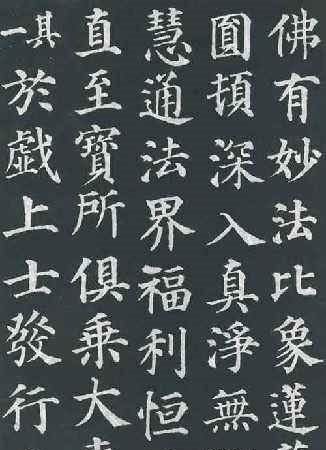 佛有妙法比象蓮
圓頓深入真淨無
慧通法界福利恒
直至寶所俱乘大
其一於戲上士發行